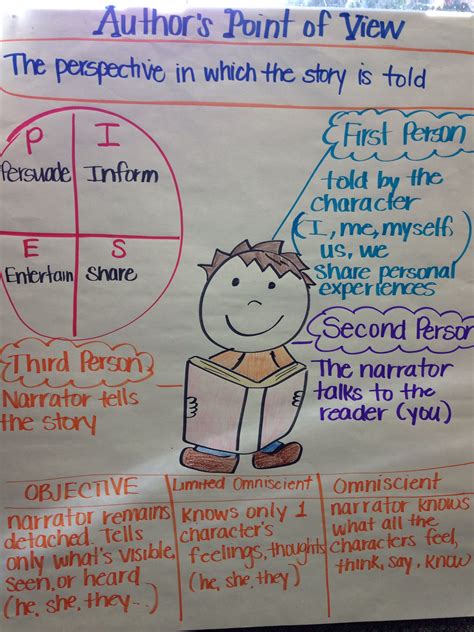 Author's Point of View
The perspective in which the story is told
P
I
Persuade
Inform
E
S
Entertain
Share
First Person
told by the
character
(I, me, myself,
us, we
Share personal
experiences
Second Person
The narrator
talks to the
reader (you)
Third Person
Narrator tells
the story
OBJECTIVE
narrator remains
detached. Tells
only what's visible,
seen, or heard
(he, she, they...)
Limited Omniscient
Knows only 1
character's
feelings, thoughts
(he, she, they)
Omniscient
narrator knows
what all the
characters feel,
think, say, know